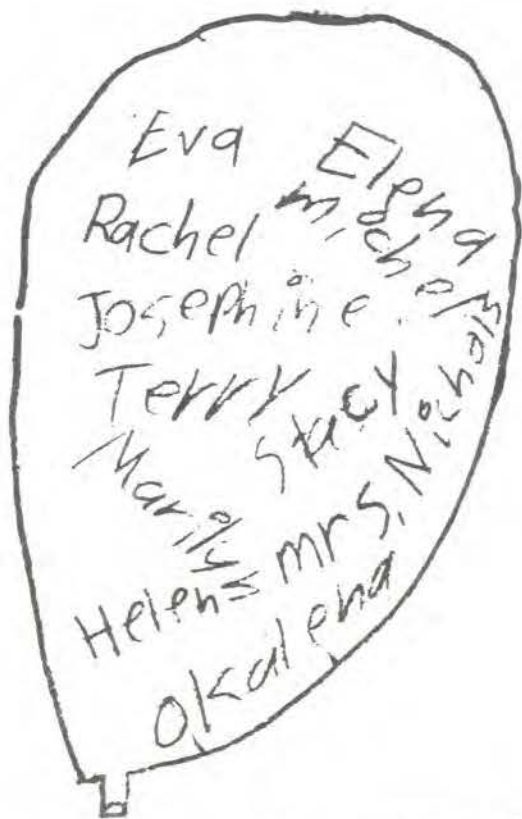 Eva
Elena
Rachel
michel
Josephine
Terry
Stacy
Marilyn
mrs. Nicholas
Helen
Okalena